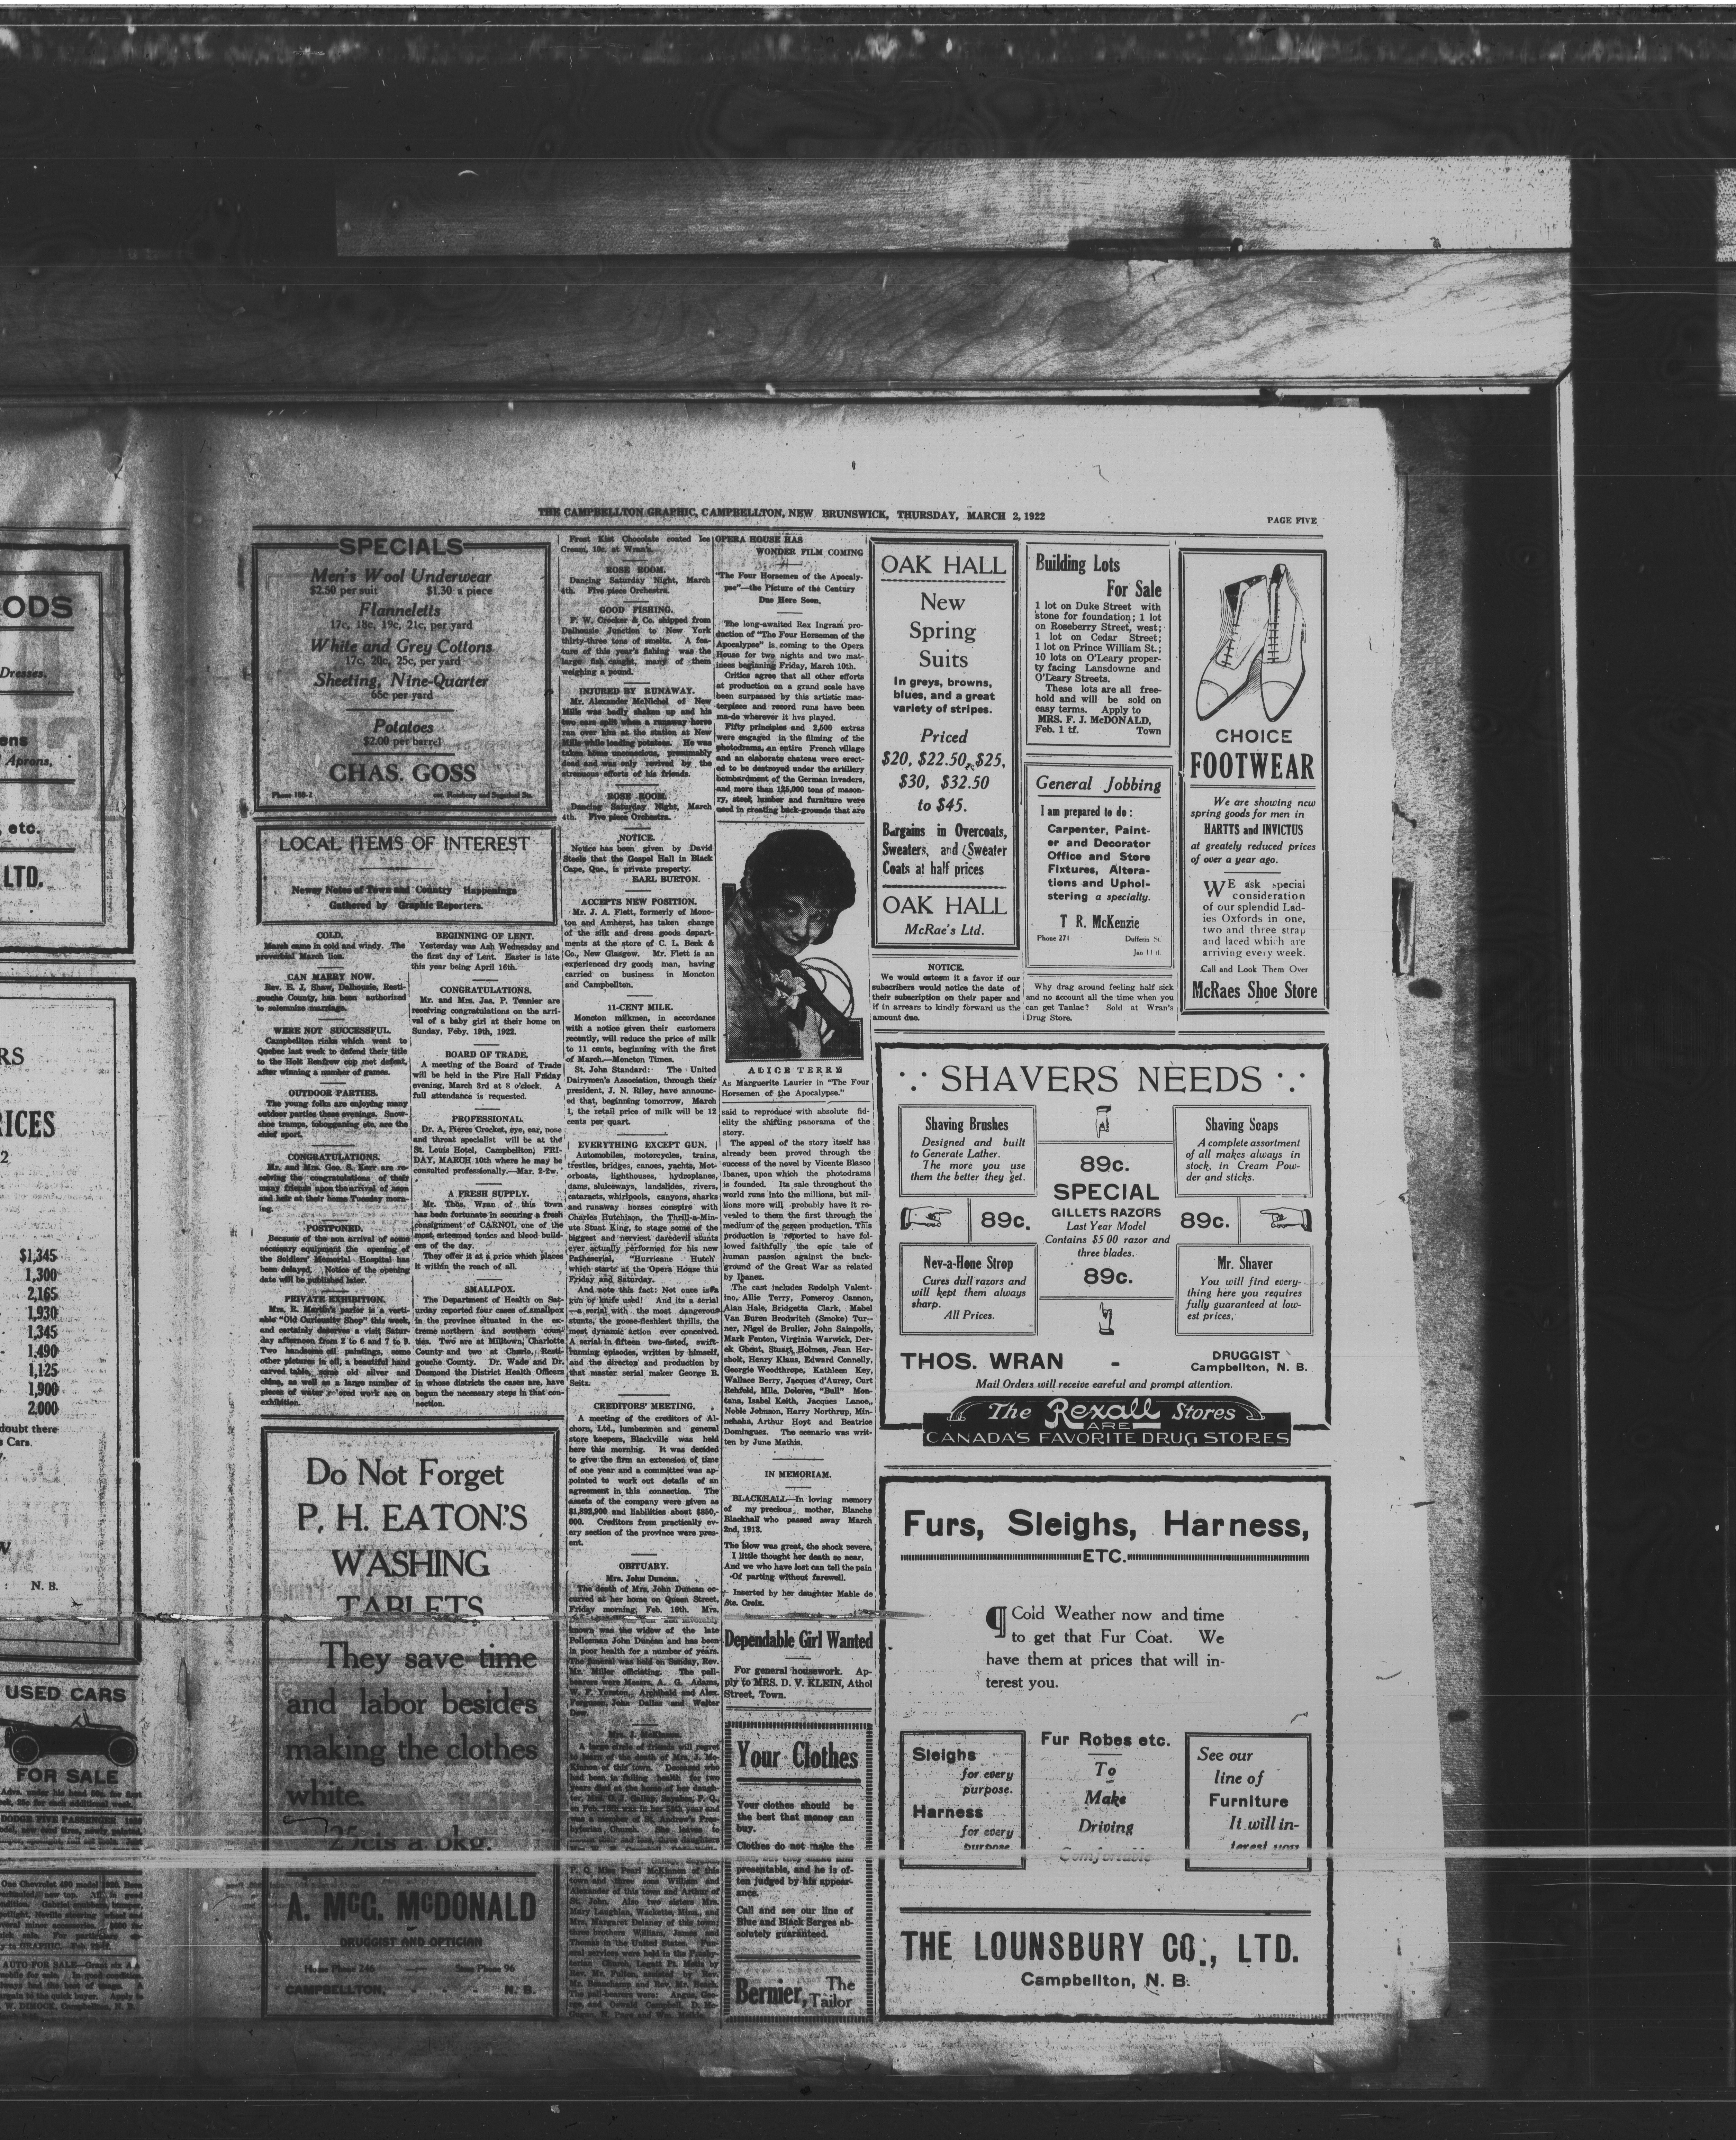 ODS
Dresses.
ens
Aprons,
, etc.
LTD.
RS
RICES
2
$1,345
1,300
2,165
1,930
1,345
1,490
1,125
1,900
2.000
doubt there
Cars.
N. B.
USED CARS
FOR SALE
THE CAMPBELLTON GRAPHIC, CAMPBELLTON, NEW BRUNSWICK, THURSDAY, MARCH 2, 1922
PAGE FIVE
SPECIALS
Men's Wool Underwear
$2.50 per suit $1.30 a piece
Flanneletts
17c, 18c, 19c, 21c, per yard
White and Grey Cottons
17c, 20c, 25c, per yard
Sheeting, Nine-Quarter
65c per yard
Potatoes
$2.00 per barrel
CHAS. GOSS
LOCAL ITEMS OF INTEREST
Newsy Notes of Town and Country Happenings
Gathered by Graphic Reporters.
COLD.
March came in cold and windy. The
proverbial March lion.
CAN MARRY NOW.
Rev. E. J. Shaw, Dalhousie, Resti-
gouche County, has been authorised
to solemnise marriage.
WERE NOT SUCCESSFUL.
Campbellton rinks which went to
Quebec last week to defend their title
to the Holt Renfrew cup met defeat,
after winning a number of games.
OUTDOOR PARTIES.
The young folks are enjoying many
outdoor parties these evenings. Snow-
shoe tramps, tobogganing etc. are the
chief sport.
CONGRATULATIONS.
Mr. and Mrs. Geo. S. Kerr are re-
ceiving the congratulations of their
many friends upon the arrival of a son
and heir at their home Tuesday morn-
ing.
POSTPONED.
Because of the non arrival of some
necessary equipment the opening of
the Soldiers' Memorial Hospital has
been delayed. Notice of the opening
date will be published later.
PRIVATE EXHIBITION.
Mrs. R. Martin's parlor is a verti-
able "Old Curiousity Shop" this week,
and certainly deserves a visit Satur-
day afternoon from 2 to 6 and 7 to 9.
Two handsome oil paintings, some
other pictures in oil, a beautiful hand
carved table, some old silver and
china, as well as a large number of
pieces of water colored work are on
exhibition.
BEGINNING OF LENT.
Yesterday was Ash Wednesday and
the first day of Lent. Easter is late
this year being April 16th.
CONGRATULATIONS.
Mr. and Mrs. Jas. P. Tennier are
receiving congratulations on the arri-
val of a baby girl at their home on
Sunday, Feby. 19th, 1922.
BOARD OF TRADE.
A meeting of the Board of Trade
will be held in the Fire Hall Friday
evening, March 3rd at 8 o'clock. A
full attendance is requested.
PROFESSIONAL
Dr. A. Pierce Crocket, eye, ear, nose
and throat specialist will be at the
St. Louis Hotel, Campbellton, FRI-
DAY, MARCH 10th where he may be
consulted professionally.—Mar. 2-2w.
A FRESH SUPPLY.
Mr. Thos. Wran of this town
has been fortunate in securing a fresh
consignment of CARNOL one of the
most esteemed tonics and blood build-
ers of the day.
They offer it at a price which places
it within the reach of all.
SMALLPOX.
The Department of Health on Sat-
urday reported four cases of smallpox
in the province situated in the ex-
treme northern and southern coun-
ties. Two are at Milltown, Charlotte
County and two at Charlo, Resti-
gouche County. Dr. Wade and Dr.
Desmond the District Health Officers
in whose districts the cases are, have
begun the necessary steps in that con-
nection.
Do Not Forget
P. H. EATON'S
WASHING
TABLETS
They save time
and labor besides
making the clothes
white.
25cts a pkg.
A. McG. McDONALD
DRUGGIST AND OPTICIAN
House Phone 246 Store Phone 96
CAMPBELLTON, - - - N. B.
Frost Kist Chocolate coated Ice
Cream, 10c. at Wran's.
ROSE ROOM.
Dancing Saturday Night, March
4th. Five piece Orchestra.
GOOD FISHING.
P. W. Crocker & Co. shipped from
Dalhousie Junction to New York
thirty-three tons of smelts. A fea-
ture of this year's fishing was the
large fish caught, many of them
weighing a pound.
INJURED BY RUNAWAY.
Mr. Alexander McNichol of New
Mills was badly shaken up and his
two ears split when a runaway horse
ran over him at the station at New
Mills while loading potatoes. He was
taken home unconscious, presumably
dead and was only revived by the
strenuous efforts of his friends.
ROSE ROOM.
Dancing Saturday Night, March
4th. Five piece Orchestra.
NOTICE.
Notice has been given by David
Steele that the Gospel Hall in Black
Cape, Que., is private property.
EARL BURTON.
ACCEPTS NEW POSITION.
Mr. J. A. Flett, formerly of Monc-
ton and Amherst, has taken charge
of the silk and dress goods depart-
ments at the store of C. L. Beck &
Co., New Glasgow. Mr. Flett is an
experienced dry goods man, having
carried on business in Moncton
and Campbellton.
11-CENT MILK.
Moncton milkmen, in accordance
with a notice given their customers
recently, will reduce the price of milk
to 11 cents, beginning with the first
of March.—Moncton Times.
St. John Standard: The United
Dairymen's Association, through their
president, J. N. Riley, have announc-
ed that, beginning tomorrow, March
1, the retail price of milk will be 12
cents per quart.
EVERYTHING EXCEPT GUN.
Automobiles, motorcycles, trains,
trestles, bridges, canoes, yachts, Mot-
orboats, lighthouses, hydroplanes,
dams, sluiceways, landslides, rivers,
cataracts, whirlpools, canyons, sharks
and runaway horses conspire with
Charles Hutchison, the Thrill-a-Min-
ute Stunt King, to stage some of the
biggest and nerviest daredevil stunts
ever actually performed for his new
Patheserial, "Hurricane Hutch'
which starts at the Opera House this
Friday and Saturday.
And note this fact: Not once is a
gun or knife used! And its a serial
—a serial with the most dangerous
stunts, the goose-fleshiest thrills, the
most dynamic action ever conceived.
A serial in fifteen two-fisted, swift-
running episodes, written by himself,
and the director and production by
that master serial maker George B.
Seitz.
CREDITORS' MEETING.
A meeting of the creditors of Al-
chorn, Ltd., lumbermen and general
store keepers, Blackville was held
here this morning. It was decided
to give the firm an extension of time
of one year and a committee was ap-
pointed to work out details of an
agreement in this connection. The
assets of the company were given as
$1,892,900 and liabilities about $850,-
000. Creditors from practically ev-
ery section of the province were pres-
ent.
OBITUARY.
Mrs. John Duncan.
The death of Mrs. John Duncan oc-
curred at her home on Queen Street,
Friday morning, Feb. 16th. Mrs.
known was the widow of the late
Policeman John Duncan and has been
in poor health for a number of years.
The funeral was held on Sunday, Rev.
Mr. Miller officiating. The pall-
bearers were Messrs. A. G. Adams,
W. F. Yorston, Archibald and Alex.
Ferguson, John Dallas and Walter
Dow.
A large circle of friends will regret
to learn of the death of Mrs. J. Mc-
Kinnon of this town. Deceased who
had been in failing health for two
years died at the home of her daugh-
OPERA HOUSE HAS
WONDER FILM COMING
"The Four Horsemen of the Apocaly-
pse"—the Picture of the Century
Due Here Soon.
The long-awaited Rex Ingram pro-
duction of "The Four Horsemen of the
Apocalypse" is coming to the Opera
House for two nights and two mat-
inees beginning Friday, March 10th.
Critics agree that all other efforts
at production on a grand scale have
been surpassed by this artistic mas-
terpiece and record runs have been
ma-de wherever it hvs played.
Fifty principles and 2,500 extras
were engaged in the filming of the
photodrama, an entire French village
and an elaborate chateau were erect-
ed to be destroyed under the artillery
bombardment of the German invaders,
and more than 125,000 tons of mason-
ry, steel, lumber and furniture were
used in creating back-grounds that are
ALICE TERRY
As Marguerite Laurier in "The Four
Horsemen of the Apocalypse."
said to reproduce with absolute fid-
elity the shifting panorama of the
story.
The appeal of the story itself has
already been proved through the
success of the novel by Vicente Blasco
Ibanez, upon which the photodrama
is founded. Its sale throughout the
world runs into the millions, but mil-
lions more will probably have it re-
vealed to them the first through the
medium of the screen production. This
production is reported to have fol-
lowed faithfully the epic tale of
human passion against the back-
ground of the Great War as related
by Ibanez.
The cast includes Rudolph Valent-
ino, Allie Terry, Pomeroy Cannon,
Alan Hale, Bridgetta Clark, Mabel
Van Buren Brodwitch (Smoke) Tur-
ner, Nigel de Brulier, John Sainpolis,
Mark Fenton, Virginia Warwick, Der-
ek Ghent, Stuart Holmes, Jean Her-
sholt, Henry Klaus, Edward Connelly,
Georgie Woodthrope, Kathleen Key,
Wallace Berry, Jacques d'Aurey, Curt
Rehfeld, Mlle. Dolores, "Bull" Mon-
tana, Isabel Keith, Jacques Lanoe,
Noble Johnson, Harry Northrup, Min-
nehaha, Arthur Hoyt and Beatrise
Domingues. The scenario was writ-
ten by June Mathis.
IN MEMORIAM.
BLACKHALL—In loving memory
of my precious mother, Blanche
Blackhall who passed away March
2nd, 1913.
The blow was great, the shock severe,
I little thought her death so near,
And we who have lost can tell the pain
Of parting without farewell.
Inserted by her daughter Mable de
Ste. Croix.
Dependable Girl Wanted
For general housework. Ap-
ply to MRS. D. V. KLEIN, Athol
Street, Town.
Your Clothes
Your clothes should be
the best that money can
buy.
Clothes do not make the
presentable, and he is of-
ten judged by his appear-
ance.
Call and see our line of
Blue and Black Serges ab-
solutely guaranteed.
Bernier, The
Tailor
OAK HALL
New
Spring
Suits
In greys, browns,
blues, and a great
variety of stripes.
Priced
$20, $22.50, $25,
$30, $32.50
to $45.
Bargains in Overcoats,
Sweaters, and Sweater
Coats at half prices
OAK HALL
McRae's Ltd.
NOTICE.
We would esteem it a favor if our
subscribers would notice the date of
their subscription on their paper and
if in arrears to kindly forward us the
amount due.
Building Lots
For Sale
1 lot on Duke Street with
stone for foundation; 1 lot
on Roseberry Street, west;
1 lot on Cedar Street;
1 lot on Prince William St.;
10 lots on O'Leary proper-
ty facing Lansdowne and
O'Leary Streets.
These lots are all free-
hold and will be sold on
easy terms. Apply to
MRS. F. J. McDONALD,
Feb. 1 tf. Town
General Jobbing
I am prepared to do:
Carpenter, Paint-
er and Decorator
Office and Store
Fixtures, Altera-
tions and Uphol-
stering a specialty.
T R. McKenzie
Phone 271 Dufferin St
Jan 11 tf.
Why drag around feeling half sick
and no account all the time when you
can get Tanlac? Sold at Wran's
Drug Store.
CHOICE
FOOTWEAR
We are showing new
spring goods for men in
HARTTS and INVICTUS
at greately reduced prices
of over a year ago.
WE ask special
consideration
of our splendid Lad-
ies Oxfords in one,
two and three strap
and laced which are
arriving every week.
Call and Look Them Over
McRaes Shoe Store
SHAVERS NEEDS
Shaving Brushes
Designed and built
to Generate Lather.
The more you use
them the better they get.
89c.
SPECIAL
GILLETS RAZORS
Last Year Model
Contains $5 00 razor and
three blades.
89c.
89c.
89c.
Shaving Soaps
A complete assortment
of all makes always in
stock, in Cream Pow-
der and sticks.
Nev-a-Hone Strop
Cures dull razors and
will kept them always
sharp.
All Prices.
Mr. Shaver
You will find every-
thing here you requires
fully guaranteed at low-
est prices,
THOS. WRAN - DRUGGIST
Campbellton, N. B.
Mail Orders will receive careful and prompt attention.
The Rexall Stores
ARE
CANADA'S FAVORITE DRUG STORES
Furs, Sleighs, Harness,
ETC.
¶ Cold Weather now and time
to get that Fur Coat. We
have them at prices that will in-
terest you.
Sleighs
for every
purpose.
Harness
for every
purpose
Fur Robes etc.
To
Make
Driving
Comfortable
See our
line of
Furniture
It will in-
terest you
THE LOUNSBURY CO., LTD.
Campbellton, N. B.